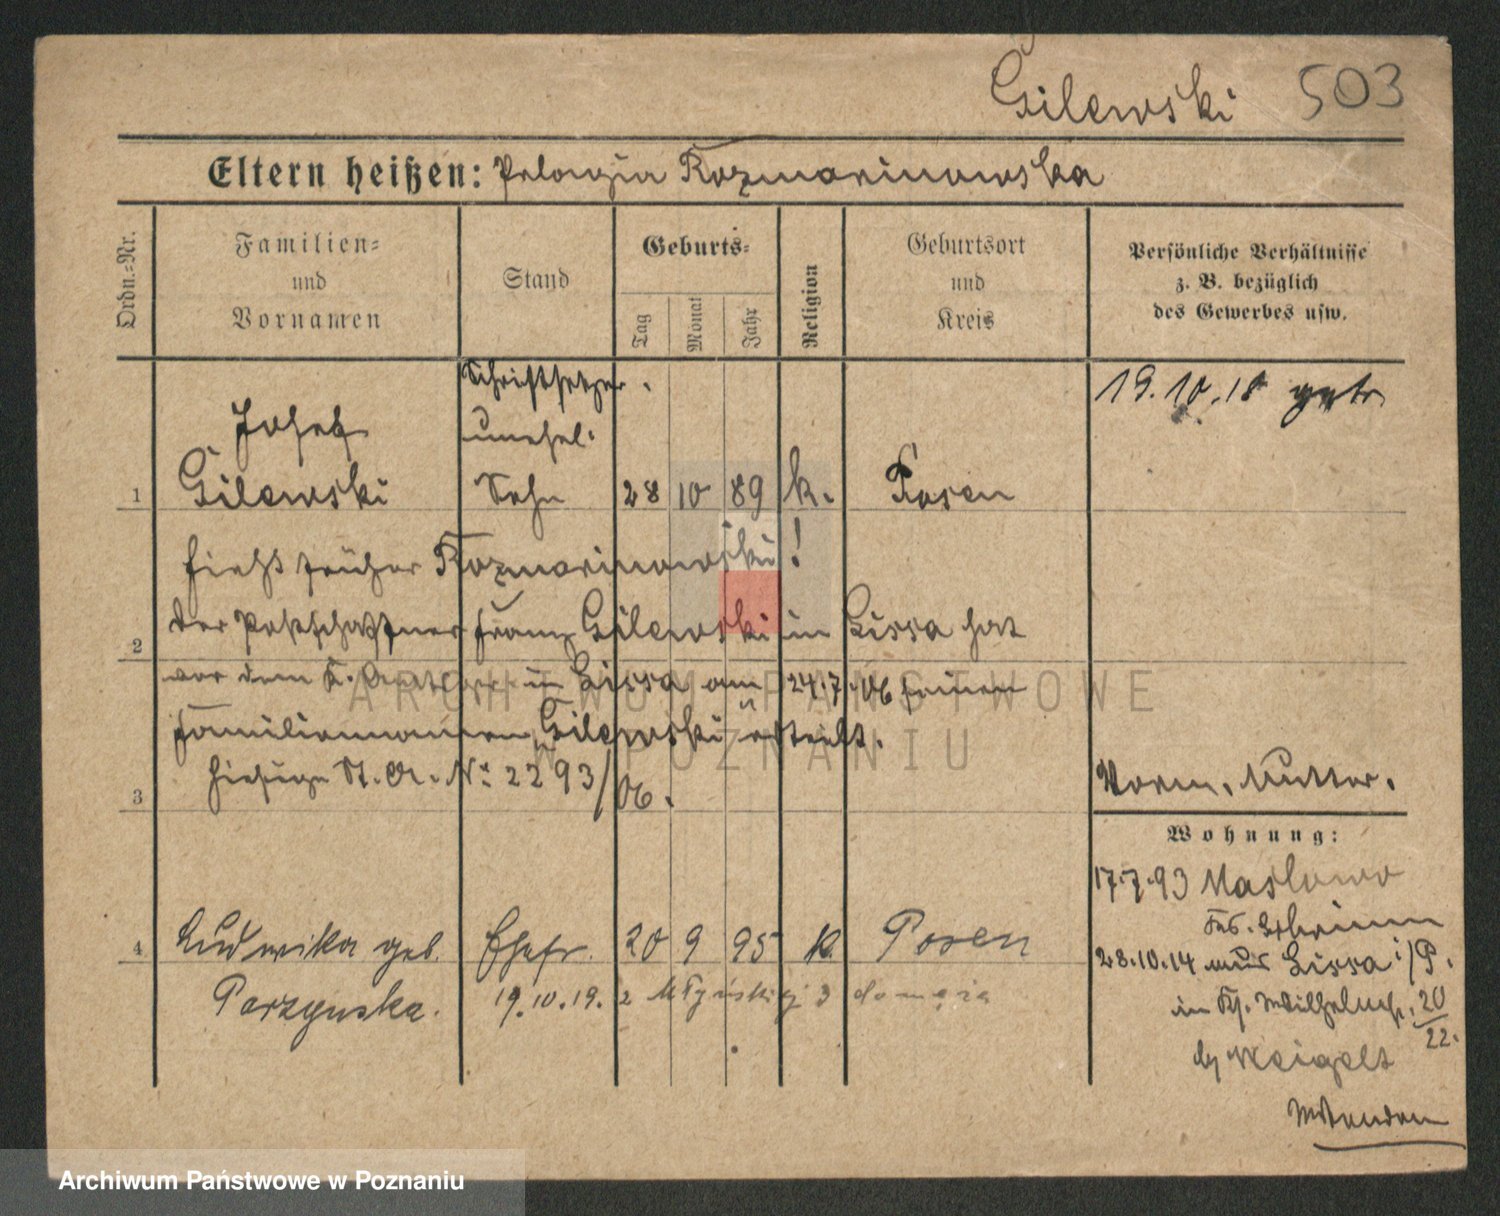 Gilewski 503
Eltern heißen: Pelagia Rozmarinowska
Ordn.-Nr.
Familien-
und
Vornamen
Stand
Geburts-
Tag
Monat
Jahr
Religion
Geburtsort
und
Kreis
Persönliche Verhältnisse
z. B. bezüglich
des Gewerbes usw.
Schriftsetzer.
19.10.18 getr
Josef
unehel.
1 Gilewski Sohn 28 10 89 k. Posen
hieß früher Rozmarinowski!
2 der Postschaffner Franz Gilewski in Lissa hat
vor dem K. in Lissa am 24.7.06 seinen
Familiennamen Gilewski erteilt.
hiesige St. A. No 2293/06.
3
Vorm. Mutter.
Wohnung:
17.7.93 Maslowo
4 Ludwika geb. Ehefr. 20 9 95 k. Posen
Parzynska. 19.10.19. 2 Młyńskiej 3
28.10.14 aus Lissa i/P.
in Kf. Wilhelmstr. 20/22.
by Weigelt
ARCHIWUM PAŃSTWOWE
W POZNANIU
Archiwum Państwowe w Poznaniu